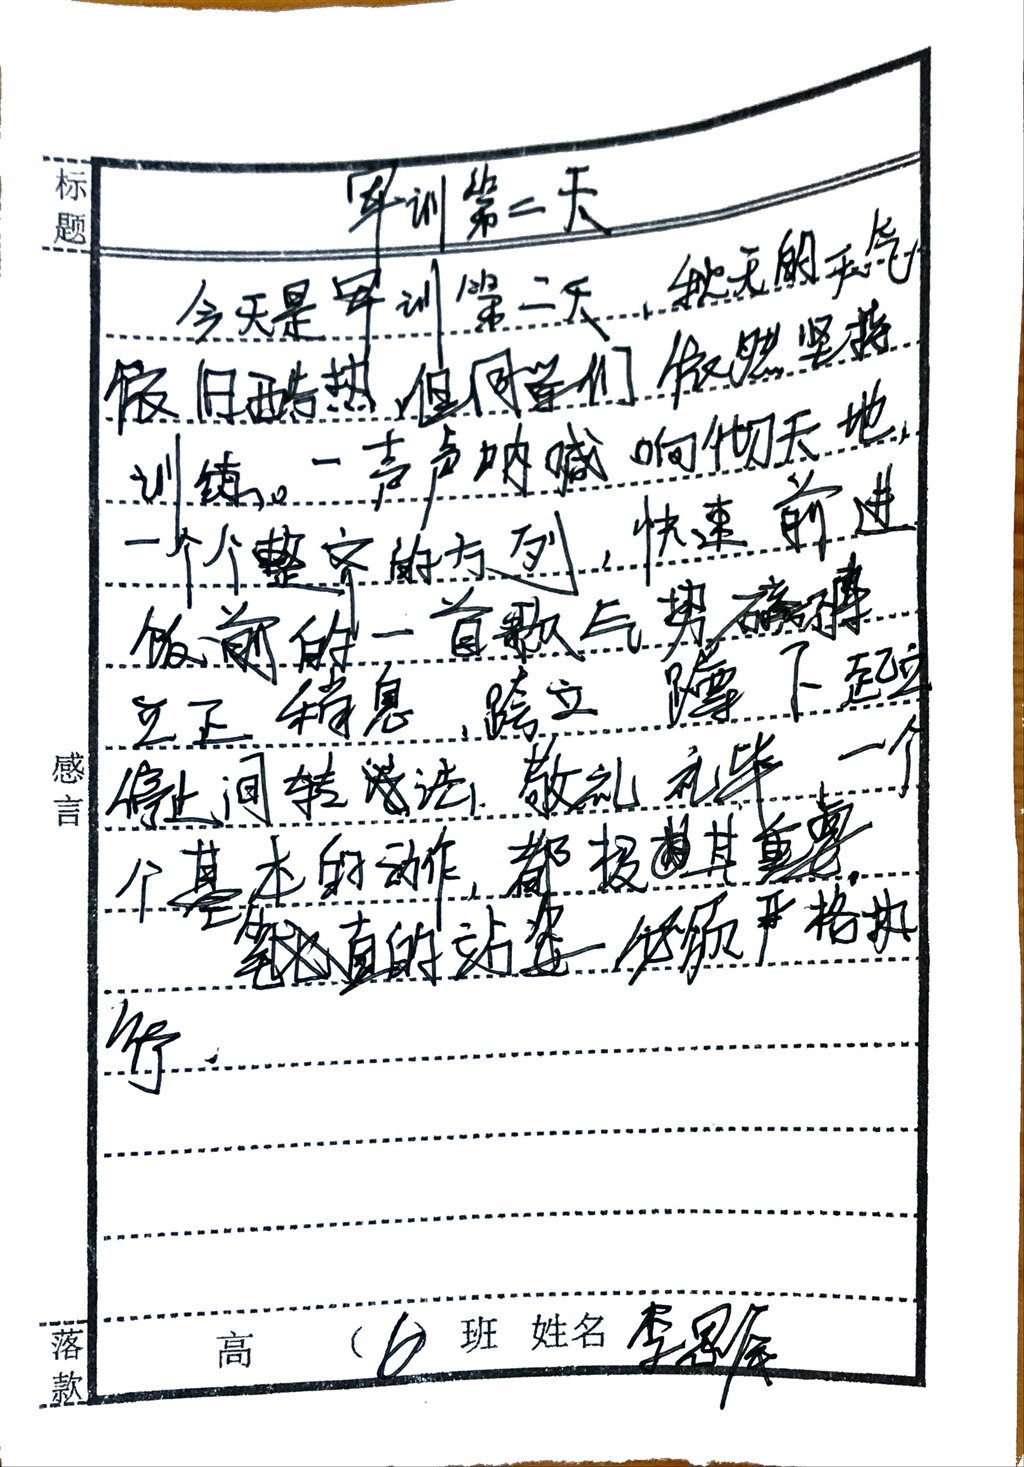 标题
军训第二天
今天是军训第二天,秋天的天气
依旧酷热,但同学们依然坚持
训练。一声声呐喊响彻天地,
一个个整齐的方列,快速前进
饭前的一首歌气势磅礴
立正 稍息,跨立 蹲下 起立
停止间转法,敬礼 礼毕,一个
个基本的动作,都极其重要.
笔直的站姿 必须严格执
行.
感言
落款
高 (6) 班 姓名 李